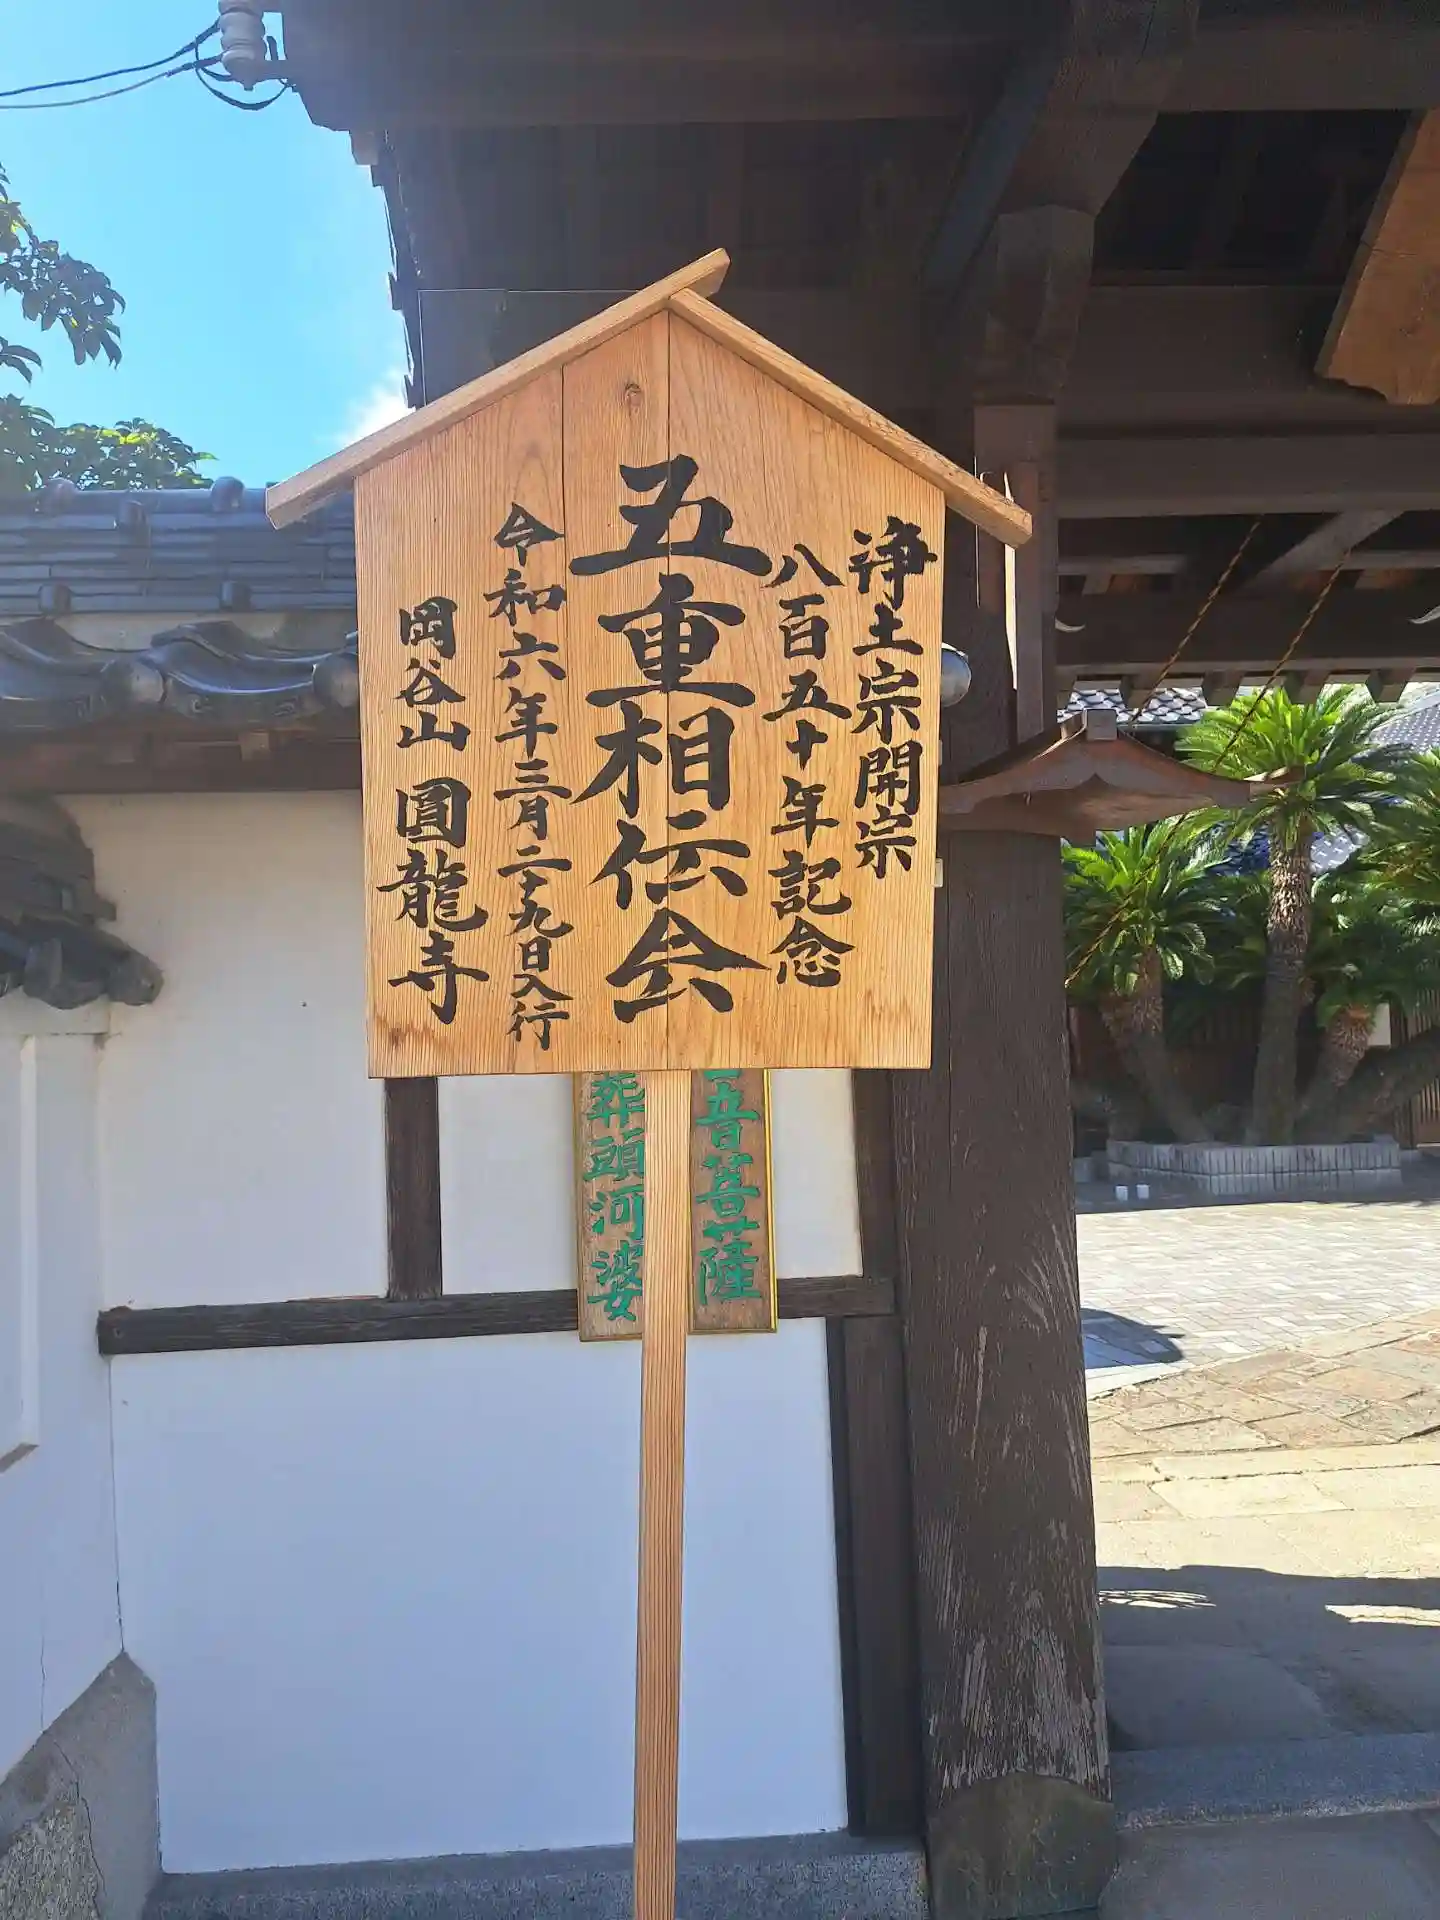 浄土宗開宗
八百五十年記念
五重相伝会
令和六年三月二十九日入行
岡谷山 圓龍寺
音菩薩
葬頭河婆